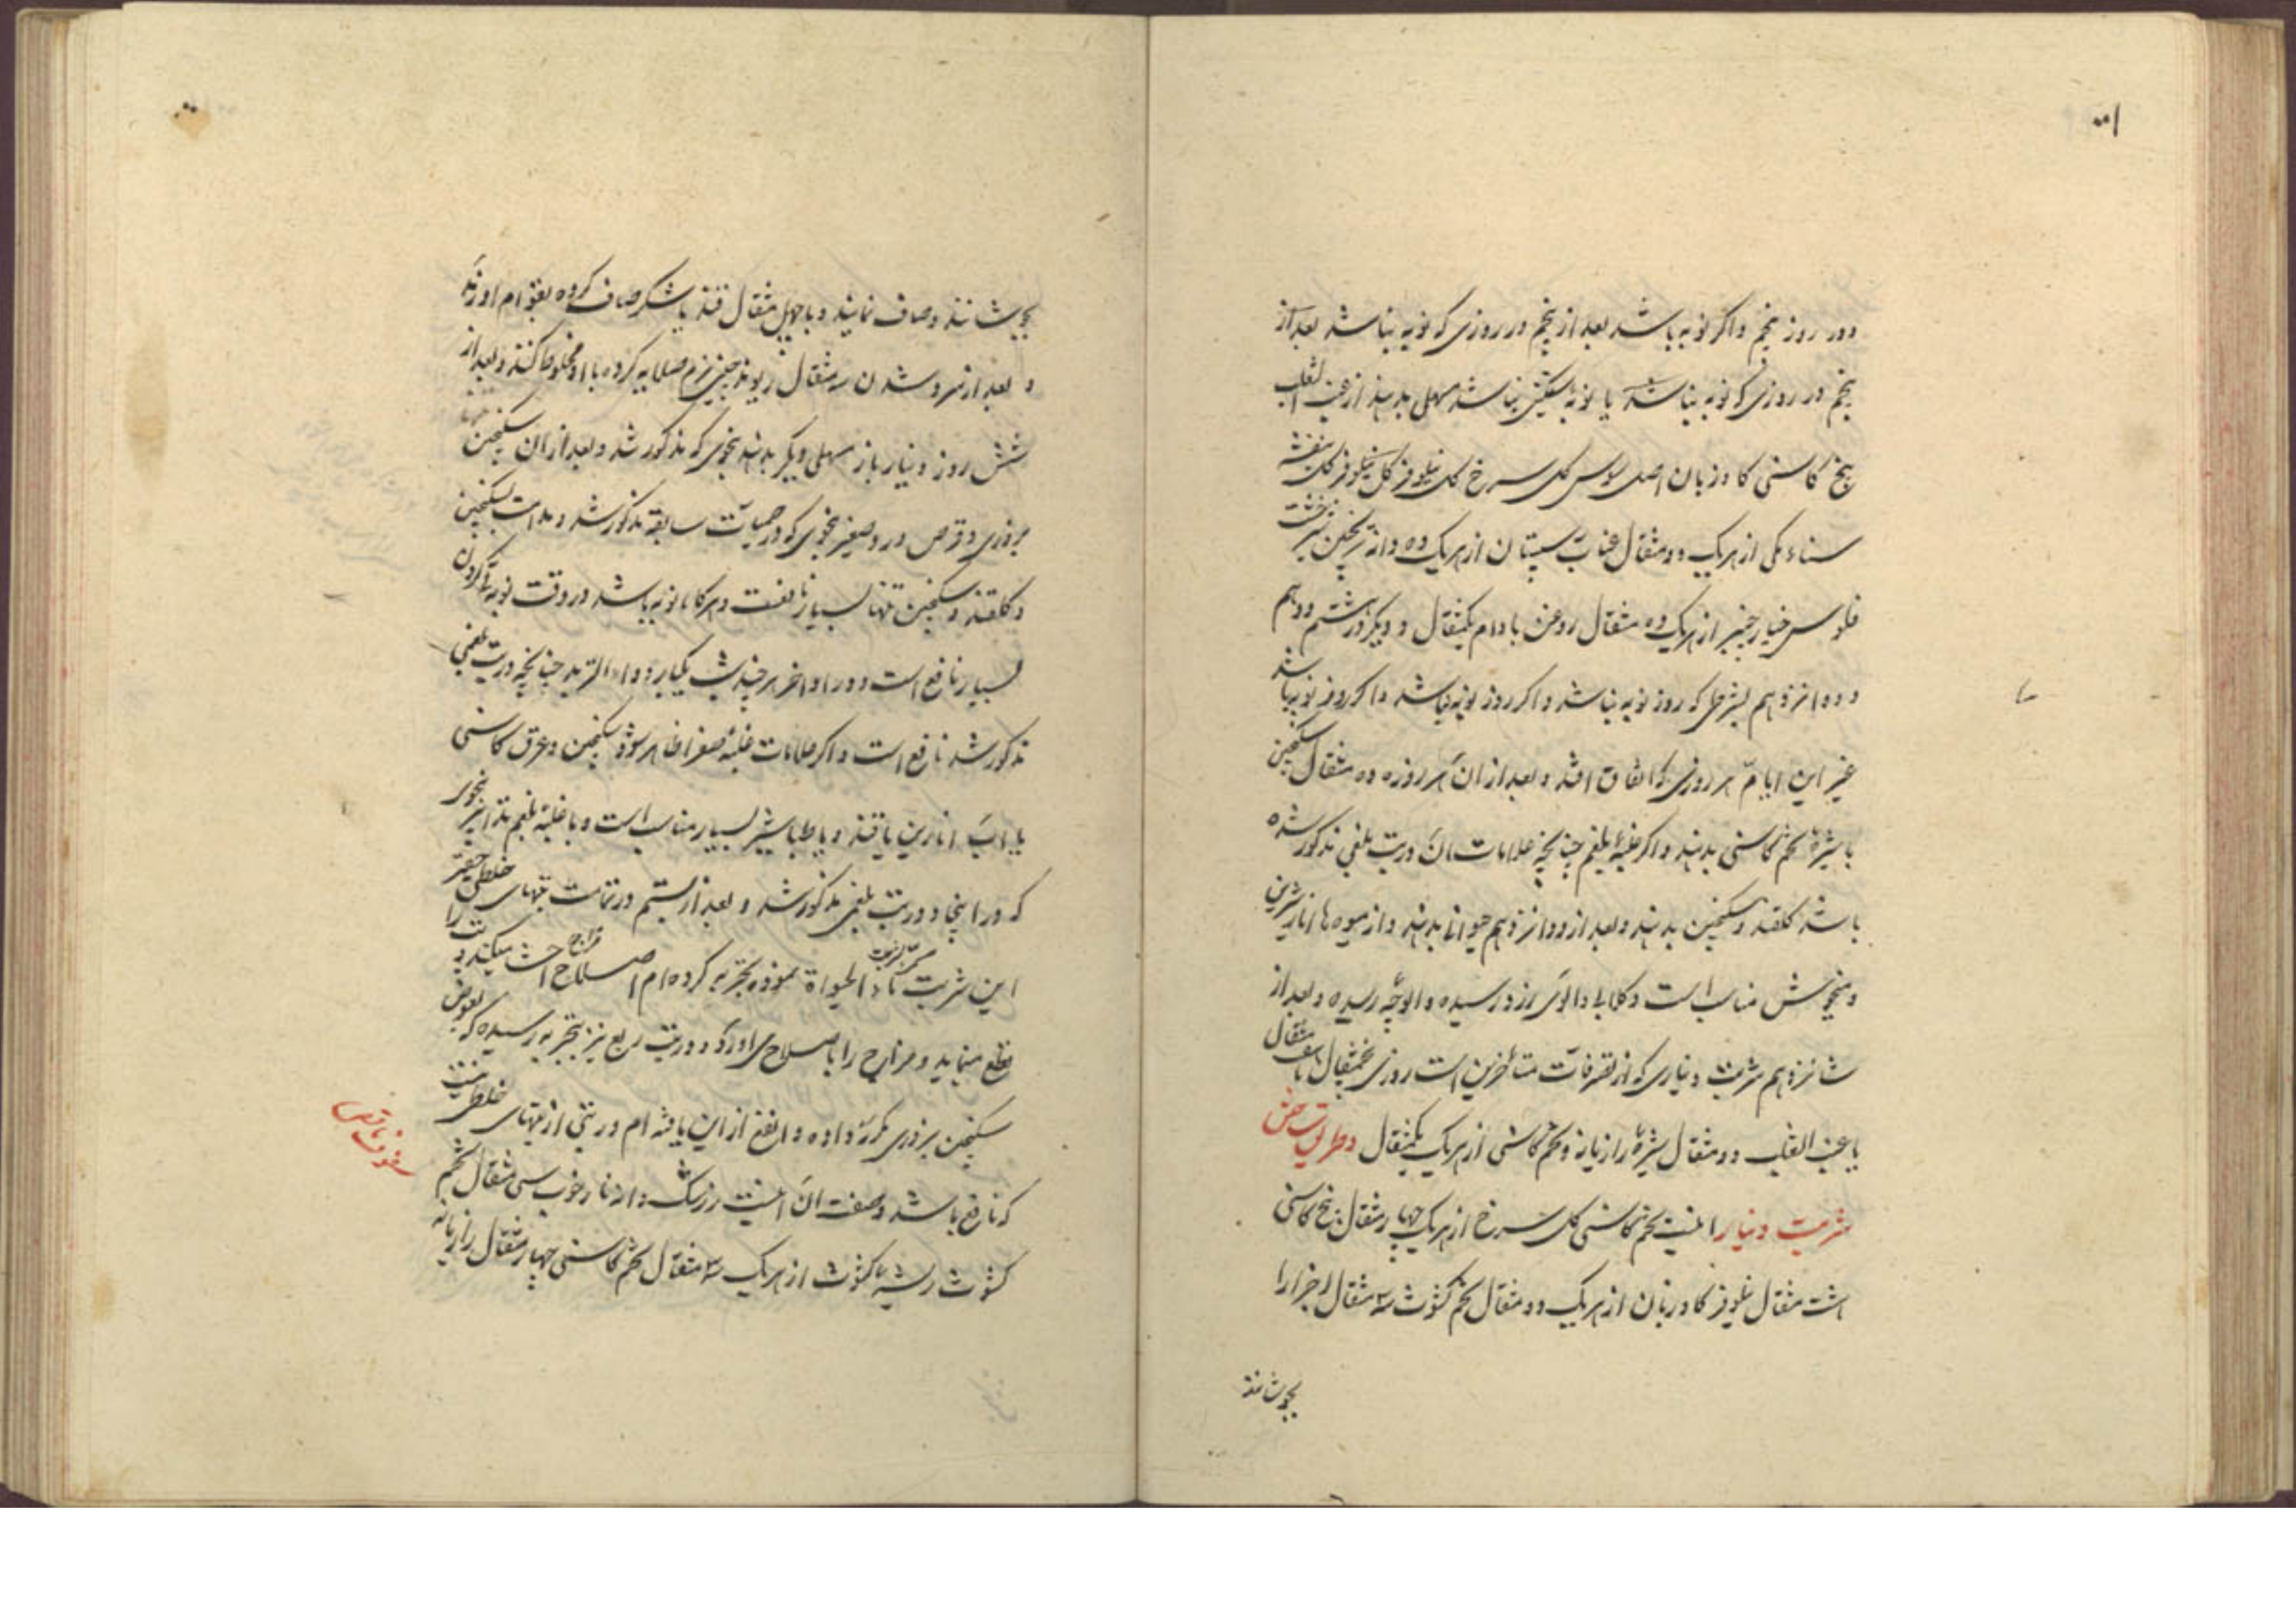 دور روز پنجم و اکر نوبه باشد بعد از پنجم در روزی که نوبه نباشد بعد از
پنجم در روزی که نوبه نباشد یا نوبه نباشد مسهلی بدهند از عنب الثعلب
بیخ کاسنی کاوزبان اصل سوس کل سرخ کل نیلوفر کل نیلوفر کل بنفشه
سناء مکی از هریک دو مثقال عناب سپستان از هریک ده دانه ترنجبین شیرخشت
فلوس خیارچنبر از هریک ده مثقال روغن بادام یکمثقال و دیکر در هشتم و دهم
و دوانزدهم بشرطی که روز نوبه نباشد و اکر روز نوبه نباشد و اکر روز نوبه باشد
غیر این ایام هر روزی که اتفاق افتد و بعد از ان هر روزه ده مثقال سکنجبین
با شیرهٔ تخم کاسنی بدهند و اکر غلبهٔ بلغم چنانچه علامات ان در تب بلغمی مذکور شده
باشد کلقند و سکنجبین بدهند و بعد از دوانزدهم بدهند و از میوه ها انار شیرین
و میخوش مناسب است و کلابی و الوی زرد رسیده و الوچه رسیده و بعد از
شانزدهم شربت دیناری که از تصرفات متأخرین است روزی پنجمثقال تا هفت مثقال
با عنب الثعلب دو مثقال شیرهٔ رازیانه و تخم کاسنی از هریک یکمثقال و طریق ساختن
شربت دینار اینست تخم کاسنی کل سرخ از هریک چهار مثقال بیخ کاسنی
هشت مثقال نیلوفر کاوزبان از هریک دو مثقال تخم کثوث سه مثقال اجزا را
بجوشانند
بجوشانند و صاف نمایند و با چهل مثقال قند یا شکر صاف کرده بقوام اورند
و بعد از سرد شدن سه مثقال ریوند چینی نرم صلایه کرده با او مخلوط کنند و بعد از
شش روز دینار باز مسهلی دیکر بدهند بنحوی که مذکور شد و بعد از ان سکنجبین
بزوری و قرص ورد صغیر بنحوی که در حمیات سابقه مذکور شد و مداومت سکنجبین
و کلقند و سکنجبین تنها بسیار نافعست و هرکاه نوبه باشد در وقت نوبه قی کردن
بسیار نافع است و در اواخر هر چند شب یکبار دواء التربد چنانچه در تب بلغمی
مذکور شد نافع است و اکر علامات غلبهٔ صفرا ظاهر شود سکنجبین و عرق کاسنی
یا اب انارین با قند و یا طباشیر بسیار مناسب است و با غلبهٔ بلغم تدابیر بنحوی
که در اینجا و در تب بلغمی مذکور شد و بعد از بیستم در تمامت تبهای خلطی حقیر
این شربت ماء الحیواة نموده تجربه کرده ام اصلاح مزاج احشا میکند و تب را
قطع مینماید و مزاج را باصلاح می اورد و در تب ربع نیز بتجربه رسیده که بعوض
سکنجبین بزوری مکرر داده و انفع از این نیافته ام در تبی از تبهای خلطی نیست
که نافع باشد و صفت ان اینست زرشک دانه دار خوب سی مثقال تخم
کثوث ریشهٔ کثوث از هریک سه مثقال تخم کاسنی چهار مثقال رازیانه
سفوف ناقص